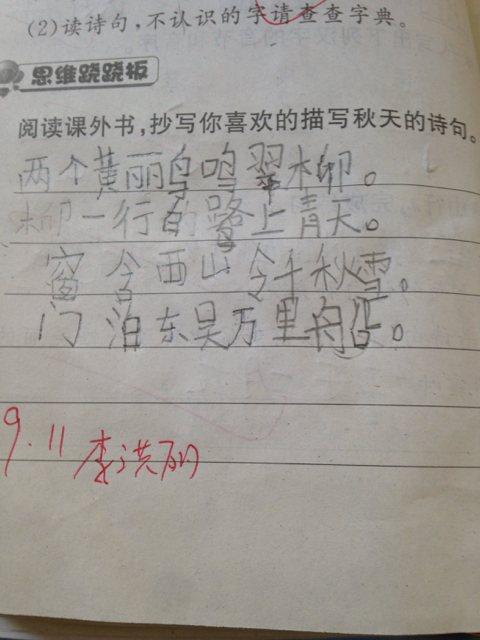 (2)读诗句,不认识的字请查查字典。
思维跷跷板
阅读课外书,抄写你喜欢的描写秋天的诗句。
两个黄丽鸟鸣翠柳。
柳一行白路上青天。
窗含西山今千秋雪。
门泊东吴万里舟船。
9.11 李洪丽